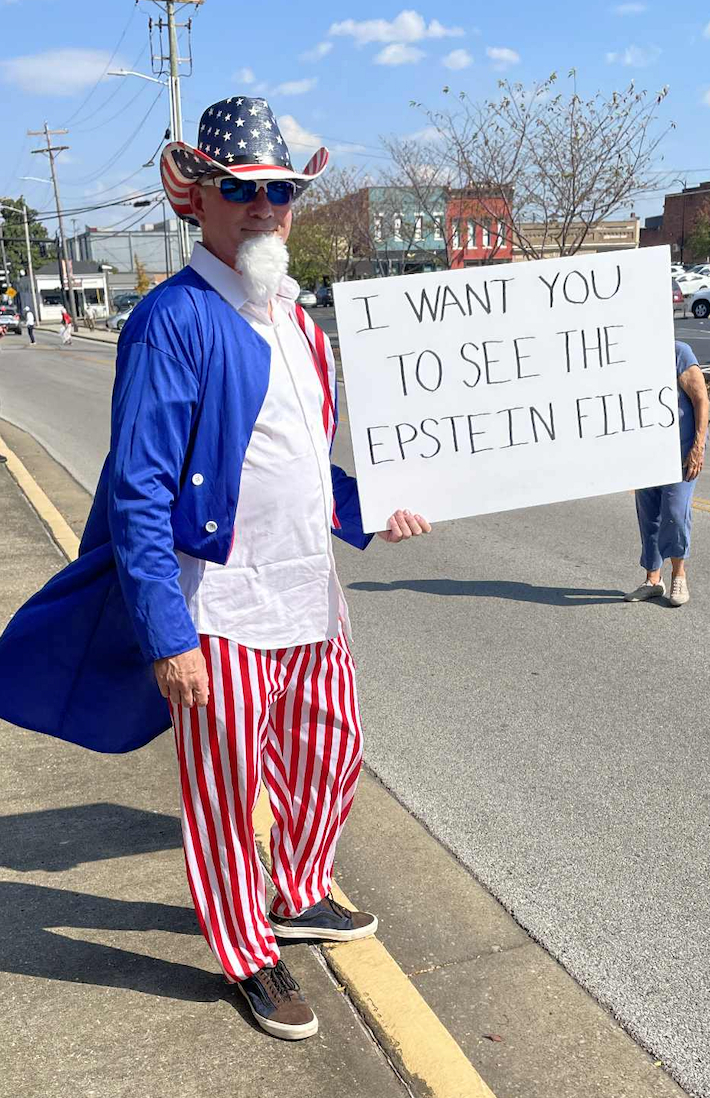 I WANT YOU
TO SEE THE
EPSTEIN FILES